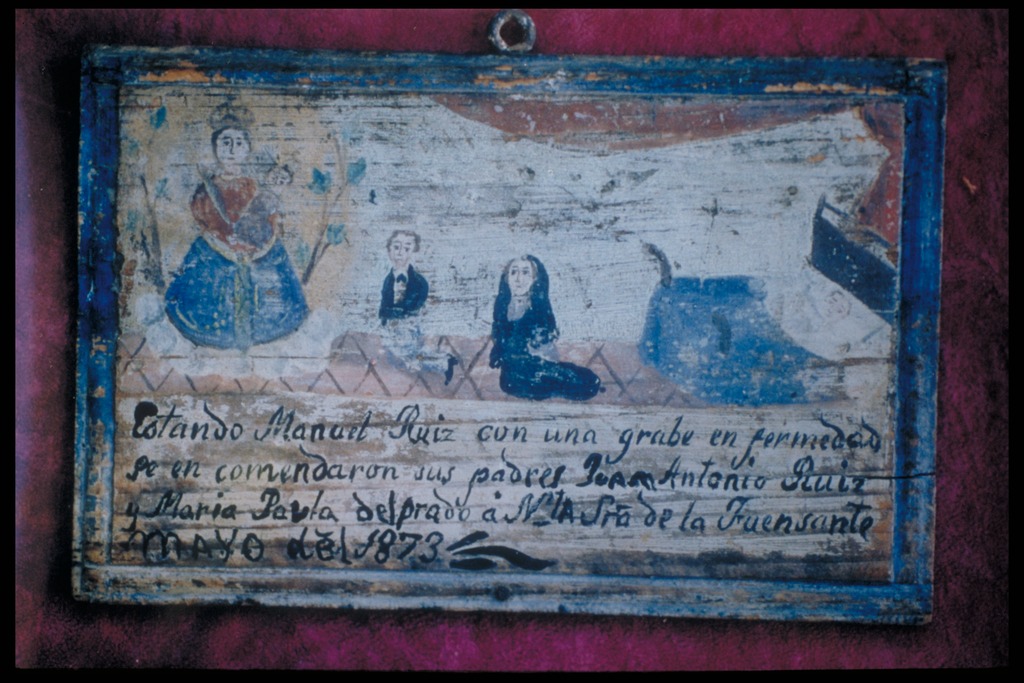 Estando Manuel Ruiz con una grabe en fermedad
se en comendaron sus padres Juan Antonio Ruiz
y Maria Paula del prado á Ntra Sra de la Fuensante
MAYO del 1873